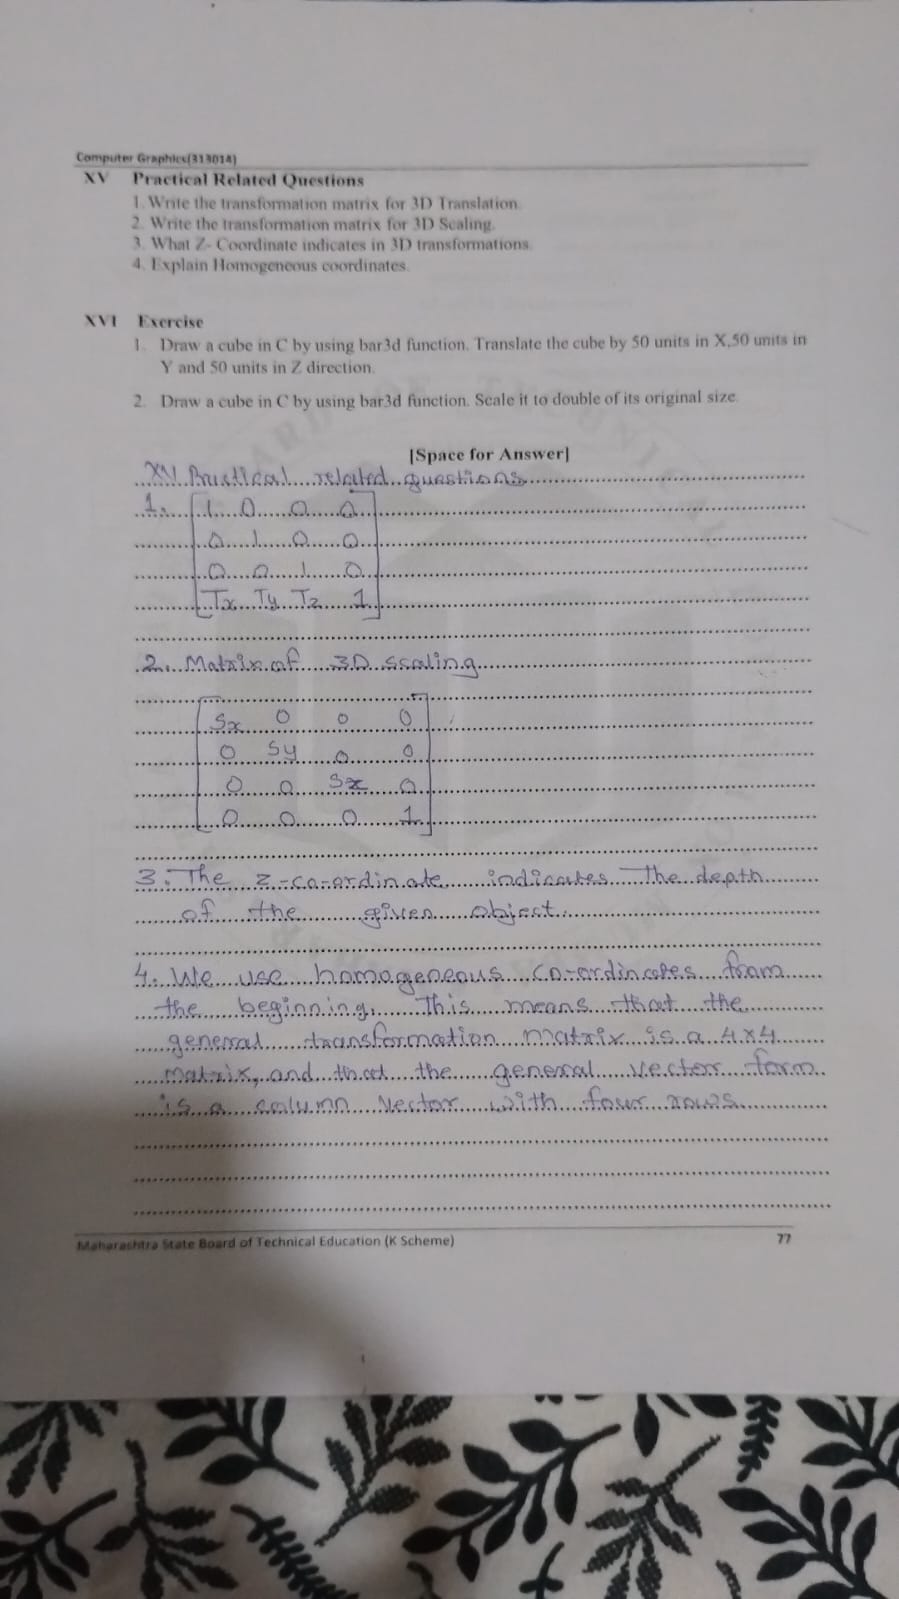 Computer Graphics(313014)
XV Practical Related Questions
1. Write the transformation matrix for 3D Translation.
2. Write the transformation matrix for 3D Scaling.
3. What Z- Coordinate indicates in 3D transformations.
4. Explain Homogeneous coordinates.
XVI Exercise
1. Draw a cube in C by using bar3d function. Translate the cube by 50 units in X,50 units in
Y and 50 units in Z direction.
2. Draw a cube in C by using bar3d function. Scale it to double of its original size.
[Space for Answer]
XV Practical related questions
1. 1 0 0 0
0 1 0 0
0 0 1 0
Tx Ty Tz 1
2. Matrix of 3D scaling
Sx 0 0 0
0 Sy 0 0
0 0 Sz 0
0 0 0 1
3. The z-co-ordinate indicates the depth
of the given object.
4. We use homogeneous co-ordinates from
the beginning. This means that the
general transformation matrix is a 4x4
matrix, and that the general vector form
is a column vector with four rows.
Maharashtra State Board of Technical Education (K Scheme) 77